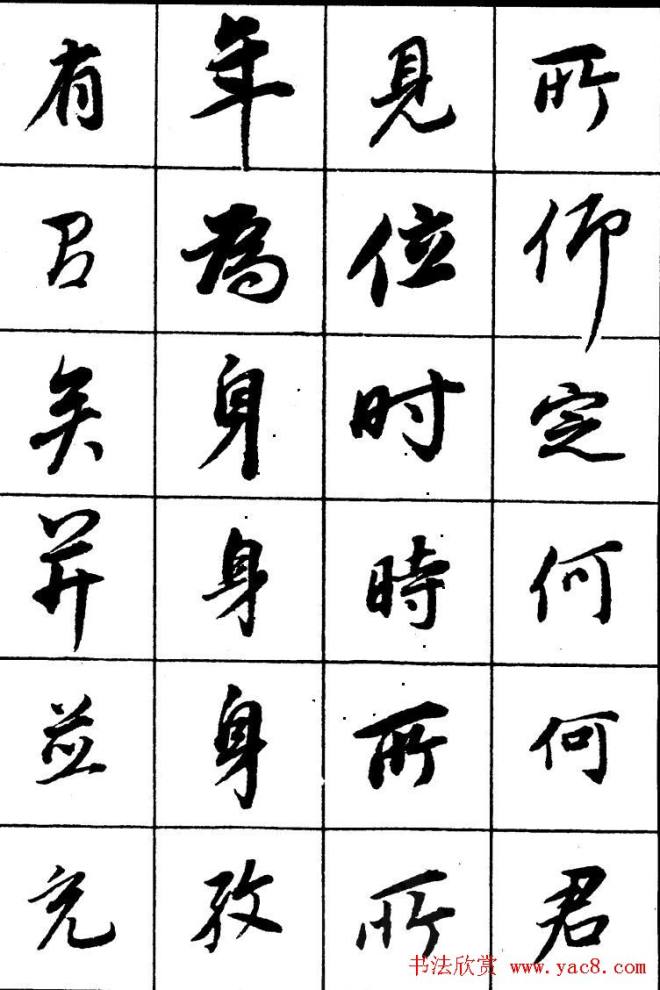 所仰定何何君
見位时時所所
年為身身身孜
有矣并並充
书法欣赏 www.yac8.com